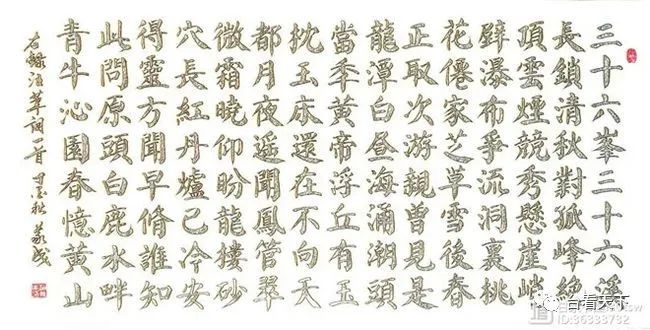 三十六峯三十六溪
長鎖清秋對孤峰絶
頂雲煙競秀懸崖峭
壁瀑布爭流洞裏桃
花僊家芝草雪後春
正取次游親曾見是
龍潭白昼海涌潮頭
當秊黄帝浮丘有玉
枕玉床還在不向天
都月夜遥聞鳳管翠
微霜曉仰盼龍樓砂
穴長紅丹爐已冷安
得靈方聞早脩誰知
此問原頭白鹿水畔
青牛沁園春憶黄山
右錄汪莘詞一首
ID:36333732